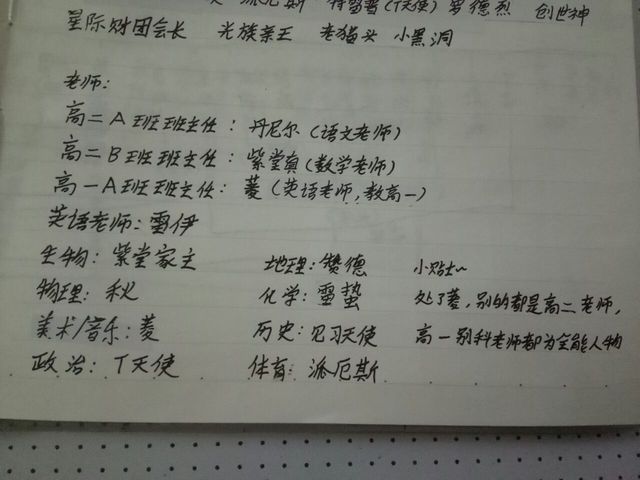 派厄斯 特雷蛰(丁天使) 罗德烈 创世神
星际财团会长 光族亲王 老猫头 小黑洞
老师:
高二A班班主任:丹尼尔(语文老师)
高二B班班主任:紫堂真(数学老师)
高一A班班主任:菱(英语老师,教高一)
英语老师:雷伊
生物:紫堂家主 地理:赞德 小贴士~
物理:秋 化学:雷蛰 处了菱,别的都是高二老师,
美术/音乐:菱 历史:见习天使 高一别科老师都为全能人物
政治:丁天使 体育:派厄斯